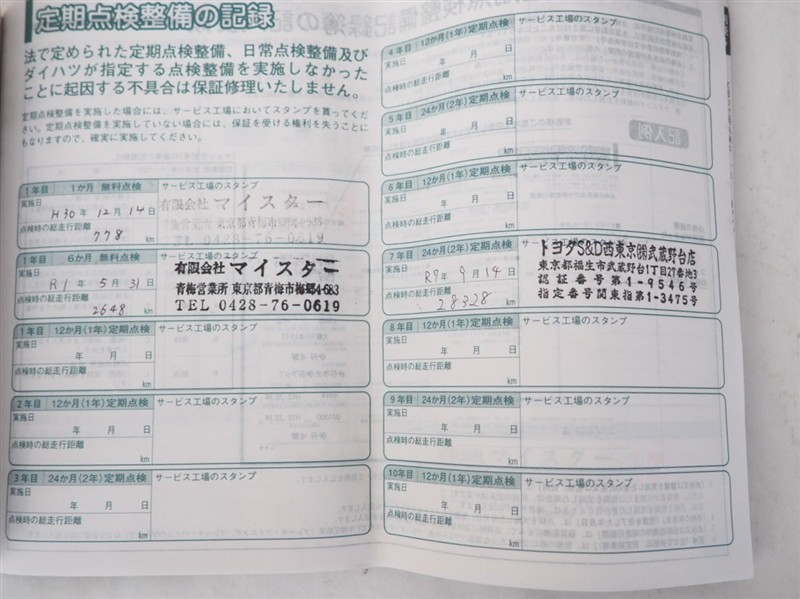 定期点検整備の記録
法で定められた定期点検整備、日常点検整備及び
ダイハツが指定する点検整備を実施しなかった
ことに起因する不具合は保証修理いたしません。
定期点検整備を実施した場合には、サービス工場においてスタンプを貰ってくだ
さい。定期点検整備を実施していない場合には、保証を受ける権利を失うことに
もなりますので、確実に実施してください。
1年目 1か月 無料点検 サービス工場のスタンプ
実施日
H30年 12月 14日
点検時の総走行距離
778 km
有限会社 マイスター
青梅営業所 東京都青梅市梅郷4-683
TEL 0428-76-0619
1年目 6か月 無料点検 サービス工場のスタンプ
実施日
R1年 5月 31日
点検時の総走行距離
2648 km
有限会社 マイスター
青梅営業所 東京都青梅市梅郷4-683
TEL 0428-76-0619
1年目 12か月(1年)定期点検 サービス工場のスタンプ
実施日
年 月 日
点検時の総走行距離
km
2年目 12か月(1年)定期点検 サービス工場のスタンプ
実施日
年 月 日
点検時の総走行距離
km
3年目 24か月(2年)定期点検 サービス工場のスタンプ
実施日
年 月 日
点検時の総走行距離
km
4年目 12か月(1年)定期点検 サービス工場のスタンプ
実施日
年 月 日
点検時の総走行距離
km
5年目 24か月(2年)定期点検 サービス工場のスタンプ
実施日
年 月 日
点検時の総走行距離
km
6年目 12か月(1年)定期点検 サービス工場のスタンプ
実施日
年 月 日
点検時の総走行距離
km
7年目 24か月(2年)定期点検 サービス工場のスタンプ
実施日
R7年 9月 14日
点検時の総走行距離
28328 km
トヨタS&D西東京㈱武蔵野台店
東京都福生市武蔵野台1丁目27番地3
認証番号第1-9546号
指定番号関東指第1-3475号
8年目 12か月(1年)定期点検 サービス工場のスタンプ
実施日
年 月 日
点検時の総走行距離
km
9年目 24か月(2年)定期点検 サービス工場のスタンプ
実施日
年 月 日
点検時の総走行距離
km
10年目 12か月(1年)定期点検 サービス工場のスタンプ
実施日
年 月 日
点検時の総走行距離
km